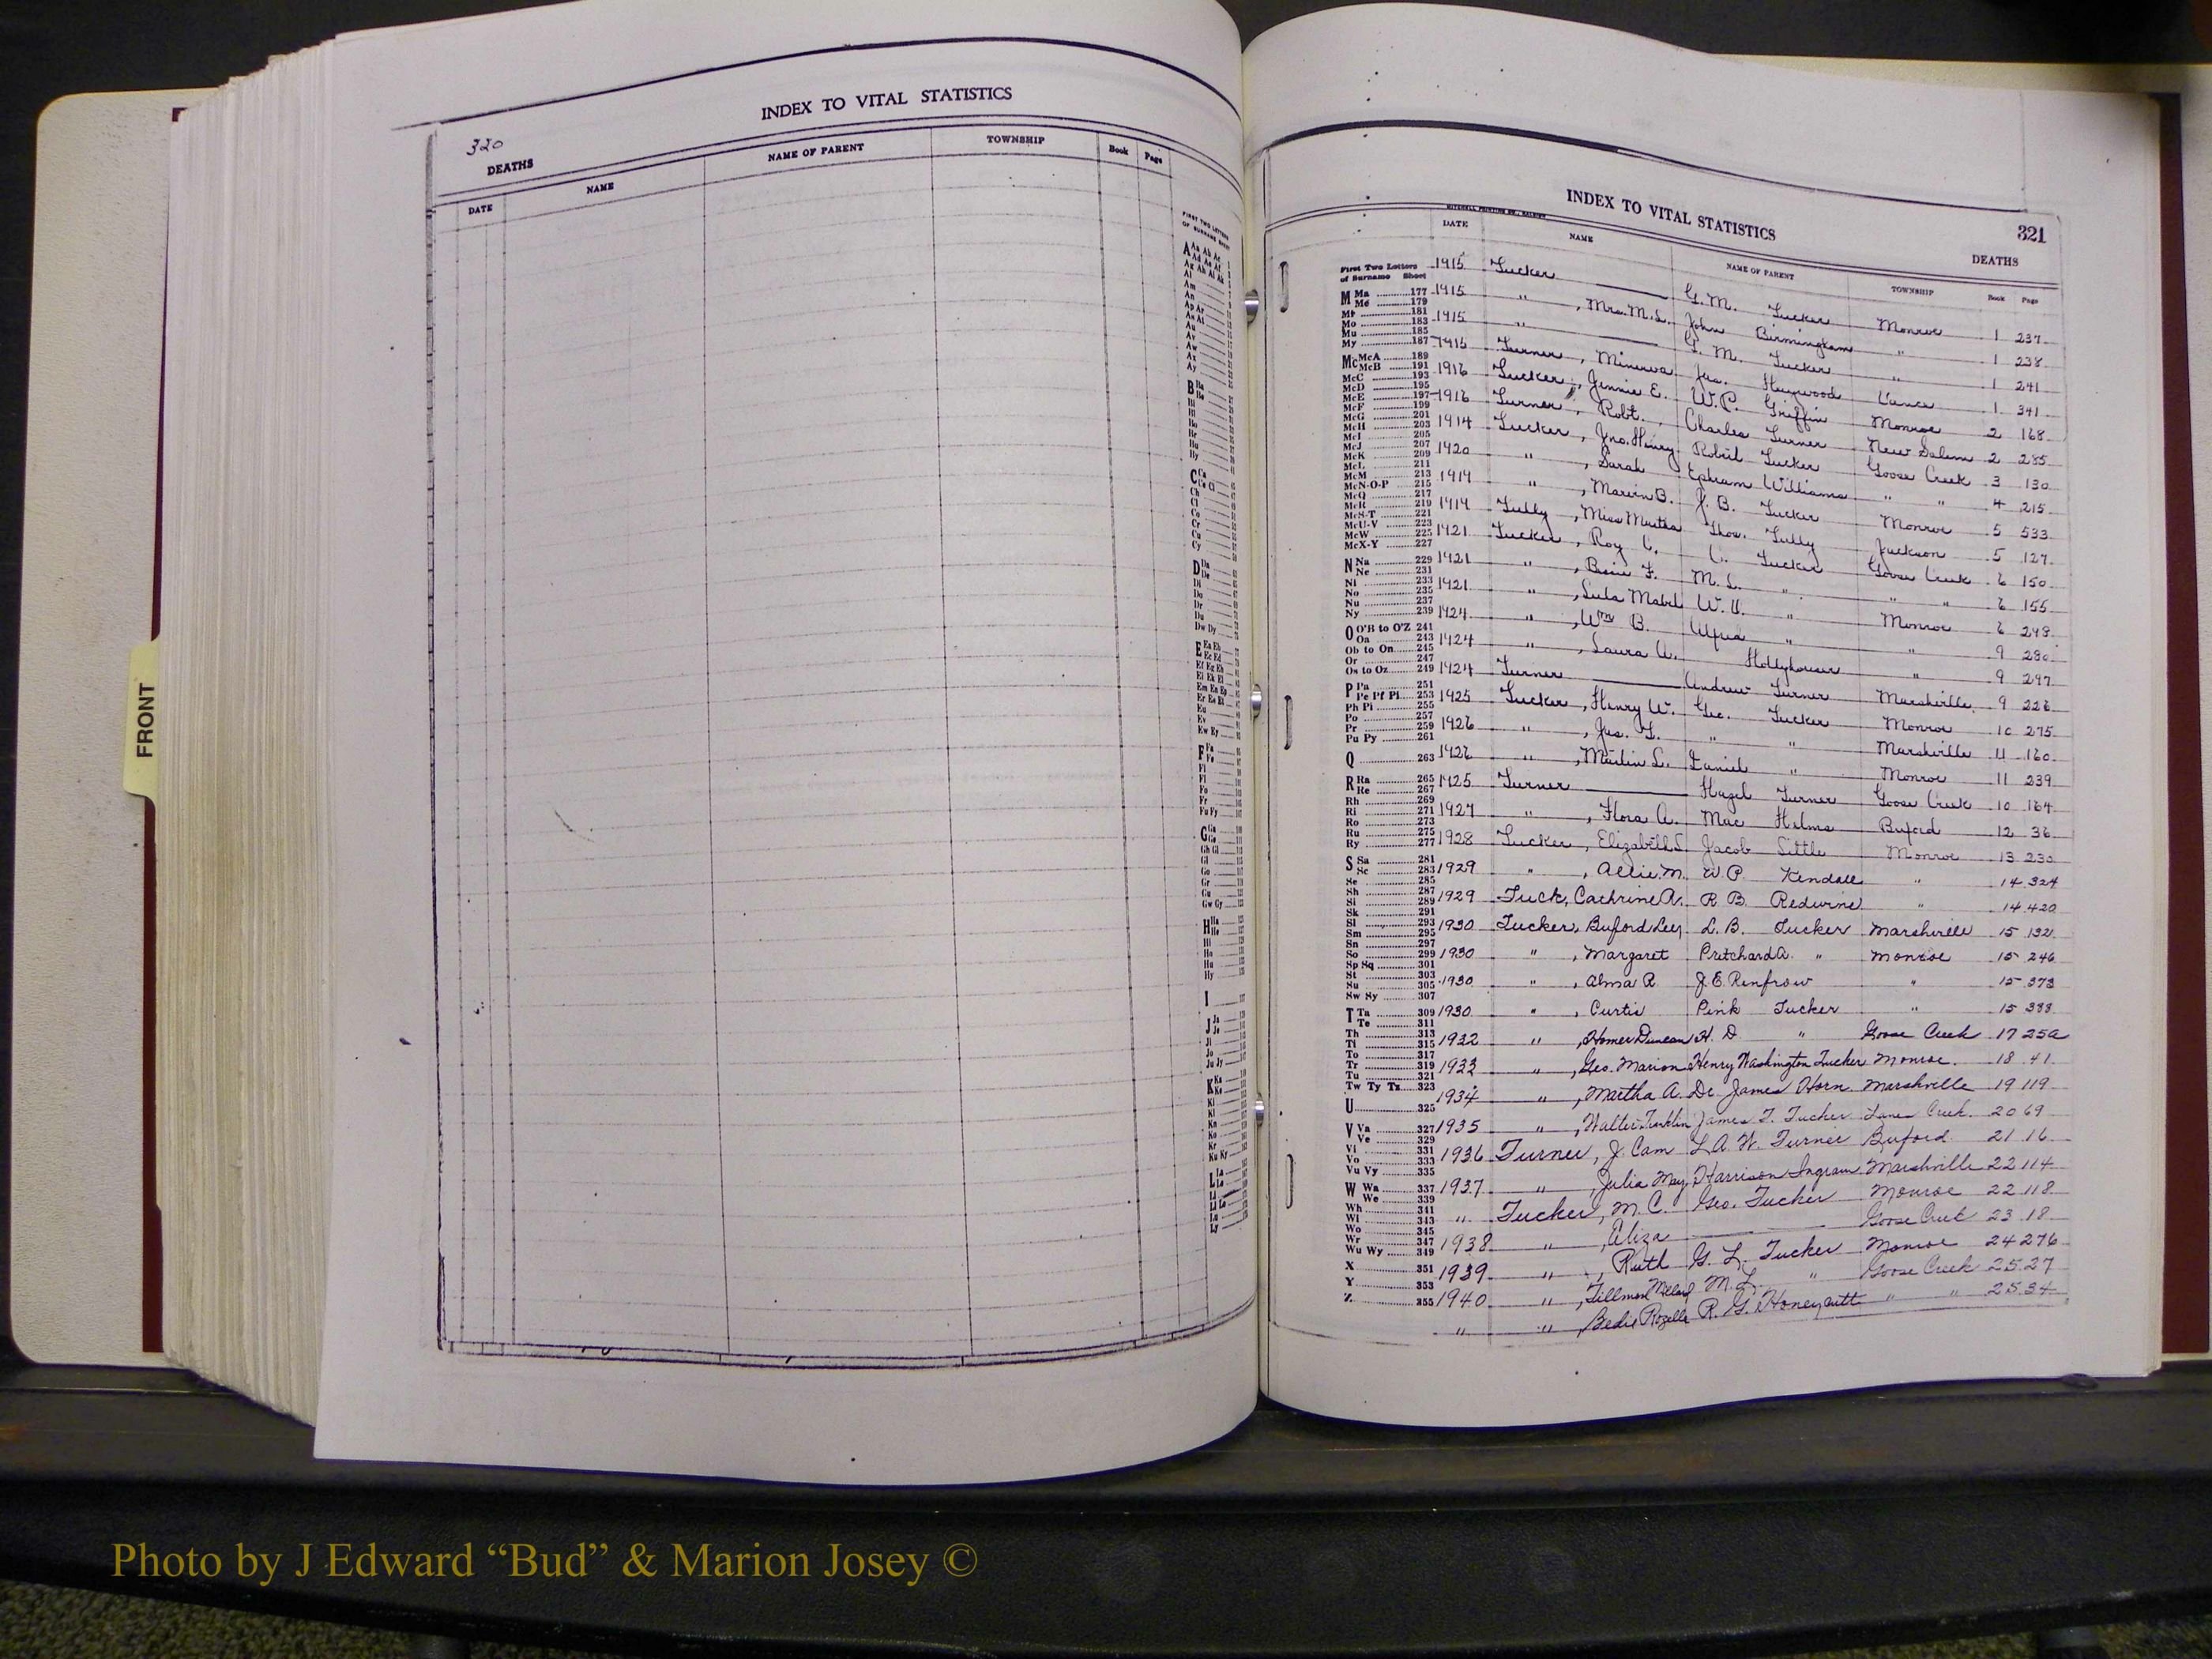 INDEX TO VITAL STATISTICS
320
DEATHS
DATE NAME NAME OF PARENT TOWNSHIP Book Page
FIRST TWO LETTERS OF SURNAME
FRONT
INDEX TO VITAL STATISTICS
321
DEATHS
DATE NAME NAME OF PARENT TOWNSHIP Book Page
First Two Letters of Surname Sheet
M Ma 177
Me 179
Mi 181
Mo 183
Mu 185
My 187
Mc McA 189
McB 191
McC 193
McD 195
McE 197
McF 199
McG 201
McH 203
McI 205
McJ 207
McK 209
McL 211
McM 213
McN-O-P 215
McQ 217
McR 219
McS-T 221
McU-V 223
McW 225
McX-Y 227
N Na 229
Ne 231
Ni 233
No 235
Nu 237
Ny 239
O O'B to O'Z 241
Oa 243
Ob to On 245
Or 247
Os to Oz 249
P Pa 251
Pe Pf Pl 253
Ph Pi 255
Po 257
Pr 259
Pu Py 261
Q 263
R Ra 265
Re 267
Rh 269
Ri 271
Ro 273
Ru 275
Ry 277
S Sa 281
Sc 283
Se 285
Sh 287
Si 289
Sk 291
Sl 293
Sm 295
Sn 297
So 299
Sp Sq 301
St 303
Su 305
Sw Sy 307
T Ta 309
Te 311
Th 313
Ti 315
To 317
Tr 319
Tu 321
Tw Ty Tz 323
U 325
V Va 327
Ve 329
Vi 331
Vo 333
Vu Vy 335
W Wa 337
We 339
Wh 341
Wi 343
Wo 345
Wr 347
Wu Wy 349
X 351
Y 353
Z 355
1915 Tucker G. M. Tucker Monroe 1 237
1915 " , Mrs. M. L. John Birmingham " 1 238
1915 " G. M. Tucker " 1 241
1915 Turner, Minerva Jas. Haywood Vance 1 341
1916 Tucker, Jennie E. W. P. Griffin Monroe 2 168
1916 Turner, Robt. Charles Turner New Salem 2 285
1914 Tucker, Jno. Henry Robert Tucker Goose Creek 3 130
1920 " , Sarah Ephram Williams " " 4 215
1919 " , Marvin B. J. B. Tucker Monroe 5 533
1919 Tully, Miss Martha Thos. Tully Jackson 5 127
1921 Tucker, Roy C. C. Tucker Goose Creek 6 150
1921 " F. M. L. " " " 6 155
1921 " , Lula Mabel W. U. " Monroe 6 248
1924 " , Wm B. " " 9 280
1924 " , Laura A. Hollyhouser " 9 297
1924 Turner Andrew Turner Marshville 9 226
1925 Tucker, Henry W. Geo. Tucker Monroe 10 275
1926 " , Jas. T. " " Marshville 11 160
1926 " , L. Daniel " Monroe 11 239
1925 Turner Hazel Turner Goose Creek 10 164
1927 " , Flora A. Mac Helms Buford 12 36
1928 Tucker, Elizabeth S. Jacob Little Monroe 13 230
1929 " , Allie M. W. P. Kendall " 14 324
1929 Tuck, Cachrine A. R. B. Redwine " 14 420
1930 Tucker, Buford Lee L. B. Tucker Marshville 15 132
1930 " , Margaret Pritchard A. " Monroe 15 246
1930 " , Alma R. J. E. Renfrow " 15 373
1930 " , Curtis Pink Tucker " 15 388
1932 " , Homer Duncan H. D. " Goose Creek 17 25a
1933 " , Geo. Marion Henry Washington Tucker Monroe 18 41
1934 " , Martha A. Dr. James Horn Marshville 19 119
1935 " , Walter Franklin James T. Tucker Lanes Creek 20 69
1936 Turner, J. Cam L. A. W. Turner Buford 21 16
1937 " , Julia May Harrison Ingram Marshville 22 114
" Tucker, M. C. Geo. Tucker Monroe 22 118
1938 " , Eliza Goose Creek 23 18
1939 " , Ruth G. L. Tucker Monroe 24 276
1940 " , Tillman M. L. " Goose Creek 25 27
" " , Rozelle R. G. Honeycutt " " 25 34
Photo by J Edward “Bud” & Marion Josey ©